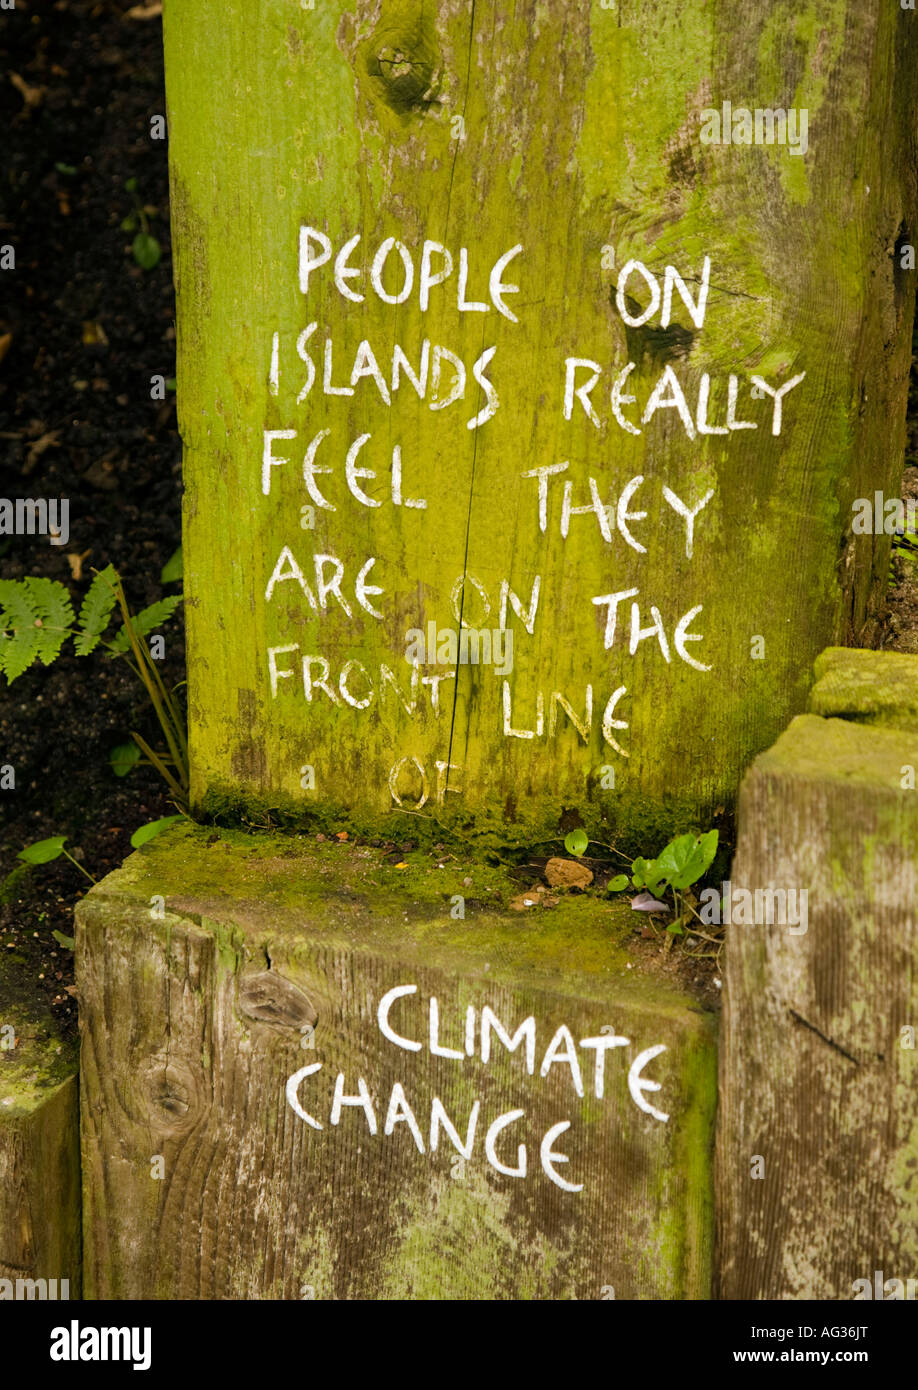 PEOPLE ON
ISLANDS REALLY
FEEL THEY
ARE ON THE
FRONT LINE
OF
CLIMATE
CHANGE
alamy
alamy stock photo
AG36JT
www.alamy.com